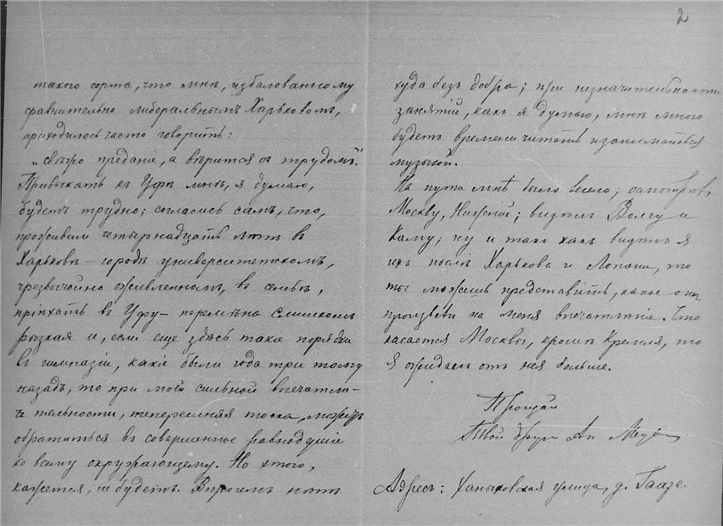 2
такого сорта, что мнѣ, избалованному
сравнительно либеральнымъ Харьковомъ,
приходилось часто говорить:
„Свѣжо преданіе, а вѣрится съ трудомъ".
Привыкать къ Уфѣ мнѣ, я думаю,
будетъ трудно; согласись самъ, что,
проживши четырнадцать лѣтъ въ
Харьковѣ – городѣ университетскомъ,
чрезвычайно оживленномъ, въ семьѣ,
пріѣхать въ Уфу – перемѣна слишкомъ
рѣзкая и, если еще здѣсь такіе порядки
въ гимназіи, какіе были года три тому
назадъ, то при моей сильной впечатли-
тельности, теперешняя тоска, можетъ
обратиться въ совершенное равнодушіе
ко всему окружающему. Но этого,
кажется, не будетъ. Впрочемъ нѣтъ
худа безъ добра; при незначительности
занятій, какъ я думаю, мнѣ много
будетъ времени читать и заниматься
музыкой.
На пути мнѣ было весело; осмотрѣлъ
Москву, Нижній; видѣлъ Волгу и
Каму, ну и такъ какъ видѣлъ я
ихъ послѣ Харькова и Лопани, то
ты можешь представить, какое они
произвели на меня впечатлѣніе. Что
касается Москвы, кромѣ Кремля, то
я ожидалъ отъ нея больше.
Прощай
Твой другъ Ан.
Адресъ: улица, д. Гаазе